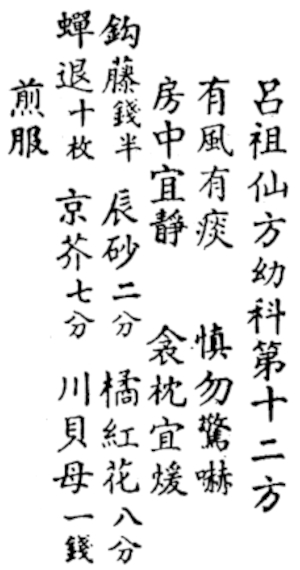 呂祖仙方幼科第十二方
有風有痰　慎勿驚嚇
房中宜靜　衾枕宜煖
鈎藤錢半　辰砂二分　橘紅花八分
蟬退十枚　京芥七分　川貝母一錢
煎服